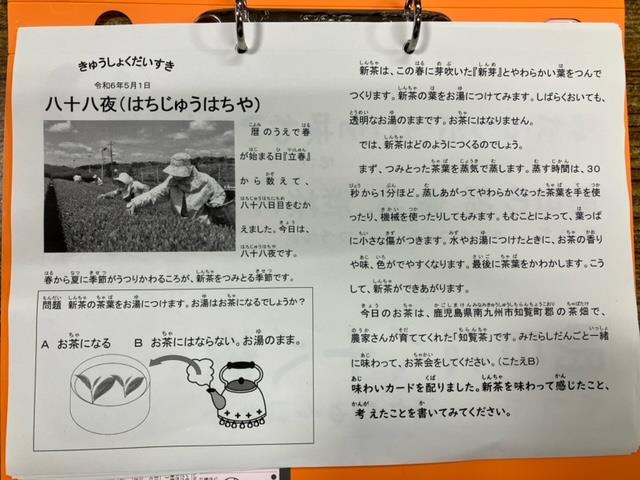 きゅうしょくだいすき
令和6年5月1日
八十八夜（はちじゅうはちや）
暦のうえで春
が始まる日『立春』
から数えて、
八十八日目をむか
えました。今日は、
八十八夜です。
春から夏に季節がうつりかわるころが、新茶をつみとる季節です。
問題 新茶の茶葉をお湯につけます。お湯はお茶になるでしょうか？
A お茶になる B お茶にはならない。お湯のまま。
新茶は、この春に芽吹いた『新芽』とやわらかい葉をつんで
つくります。新茶の葉をお湯につけてみます。しばらくおいても、
透明なお湯のままです。お茶にはなりません。
では、新茶はどのようにつくるのでしょう。
まず、つみとった茶葉を蒸気で蒸します。蒸す時間は、30
秒から1分ほど。蒸しあがってやわらかくなった茶葉を手を使
ったり、機械を使ったりしてもみます。もむことによって、葉っぱ
に小さな傷がつきます。水やお湯につけたときに、お茶の香り
や味、色がでやすくなります。最後に茶葉をかわかします。こう
して、新茶ができあがります。
今日のお茶は、鹿児島県南九州市知覧町郡の茶畑で、
農家さんが育ててくれた「知覧茶」です。みたらしだんごと一緒
に味わって、お茶会をしてください。（こたえB）
味わいカードを配りました。新茶を味わって感じたこと、
考えたことを書いてみてください。